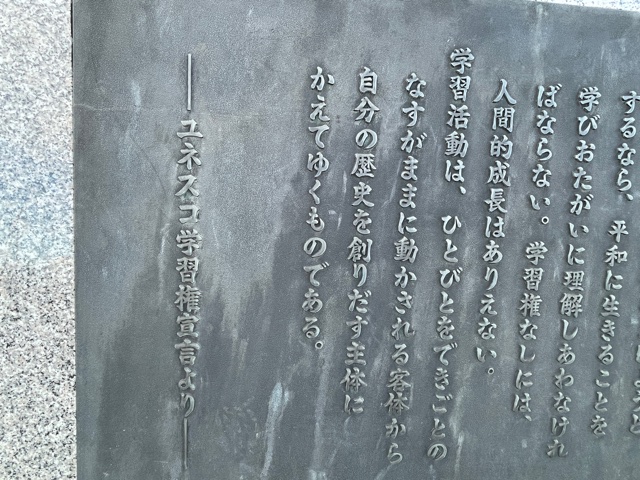 するなら、平和に生きることを
学びおたがいに理解しあわなけれ
ばならない。学習権なしには、
人間的成長はありえない。
学習活動は、ひとびとをできごとの
なすがままに動かされる客体から
自分の歴史を創りだす主体に
かえてゆくものである。
―ユネスコ学習権宣言より―